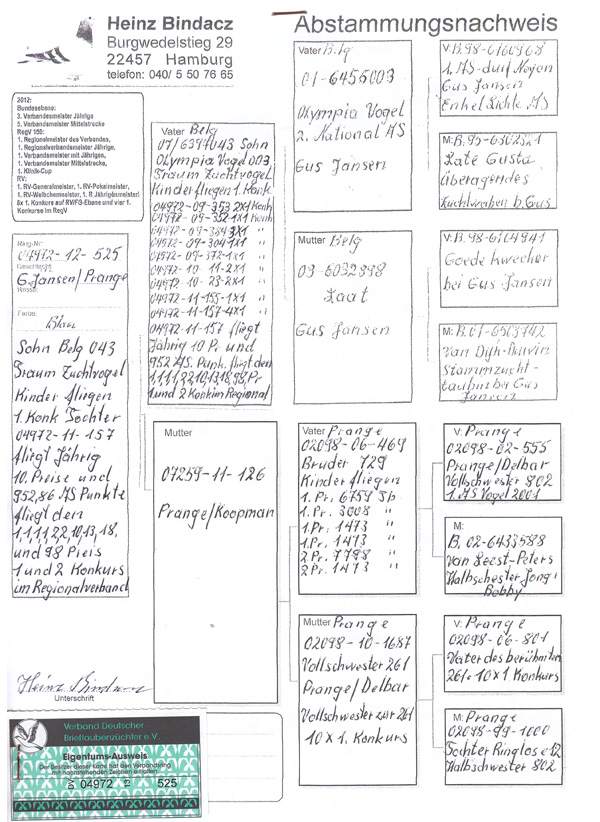 Heinz Bindacz
Burgwedelstieg 29
22457 Hamburg
telefon: 040/ 5 50 76 65
Abstammungsnachweis
2012:
Bundesebene:
3. Verbandsmeister Jährige
5. Verbandsmeister Mittelstrecke
RegV 150:
1. Regionalmeister des Verbandes,
1. Regionalverbandsmeister Jährige,
1. Verbandsmeister mit Jährigen,
1. Verbandsmeister Mittelstrecke,
1. Klinik-Cup
RV:
1. RV-Generalmeister, 1. RV-Pokalmeister,
1. RV-Weibchenmeister, 1. R Jährigenmeister!
8x 1. Konkurs auf RV/FG-Ebene und vier 1.
Konkurse im RegV
Ring-Nr.
04972-12-525
G. Jansen/Prange
Farbe
Blau
Sohn Belg 043
Traum Zuchtvogel
Kinder fliegen
1. Konk Tochter
04972-11-157
fliegt Jährig
10. Preise und
952,86 AS Punkte
fliegt den
1,1,1,1,2,2,10,13,18,
und 98 Preis
1 und 2 Konkurs
im Regionalverband
Heinz Bindacz
Unterschrift
Verband Deutscher
Brieftaubenzüchter e.V.
Eigentums-Ausweis
Der Besitzer dieser Karte hat den Verbandsring
mit nachstehenden Zeichen erhalten
04972 12 525
Vater Belg
07/6397043 Sohn
Olympia Vogel 003
Traum Zuchtvogel
Kinder fliegen 1. Konk
04972-09-353 2X1 Konk
04972-09-352-1X1 Konk
04972-09-384 3X1 "
04972-09-304 1X1 "
04972-09-372-1X1 "
04972-10-11-2X1 "
04972-10-23-2X1 "
04972-11-155-1X1 "
04972-11-157-4X1 "
04972-11-157 fliegt
Jährig 10 Pr und
952 AS. Punk. fliegt den
1,1,1,1,2,2,10,13,18,98, Pr
1 und 2 Konk im Regional
Mutter
07259-11-126
Prange/Koopman
Vater Belg
01-6456003
Olympia Vogel
2. National AS
Gus Jansen
Mutter Belg
03-6032898
Laat
Gus Jansen
Vater Prange
02098-06-469
Bruder 729
Kinder fliegen
1. Pr. 6759 Tb
1. Pr. 3008 "
1. Pr. 1473 "
1. Pr. 1473 "
2 Pr. 7798 "
2 Pr. 1473 "
Mutter Prange
02098-10-1687
Vollschwester 261
Prange/Delbar
Vollschwester zur 261
10X 1. Konkurs
V: B. 98-6160968
1. AS-duif Noyon
Gus Jansen
Enkel Lichte AS
M: B. 95-6302321
Late Gusta
überagendes
Zuchtweibchen b. Gus
V: B. 98-6104941
Goede Kweeker
bei Gus Jansen
M: B. 01-6503742
Van Dyk-Dauvin
Stammzucht-
taubin bei Gus
Jansen
V: Prange
02098-02-555
Prange/Delbar
Vollschwester 802
1. AS Vogel 2001
M:
B. 02-6433588
van Leest-Peters
Halbschester Jonge
Bobby
V: Prange
02098-06-801
Vater des berühmten
261. 10 x 1 Konkurs
M: Prange
02098-99-1000
Tochter Ringlose 12
Halbschwester 802